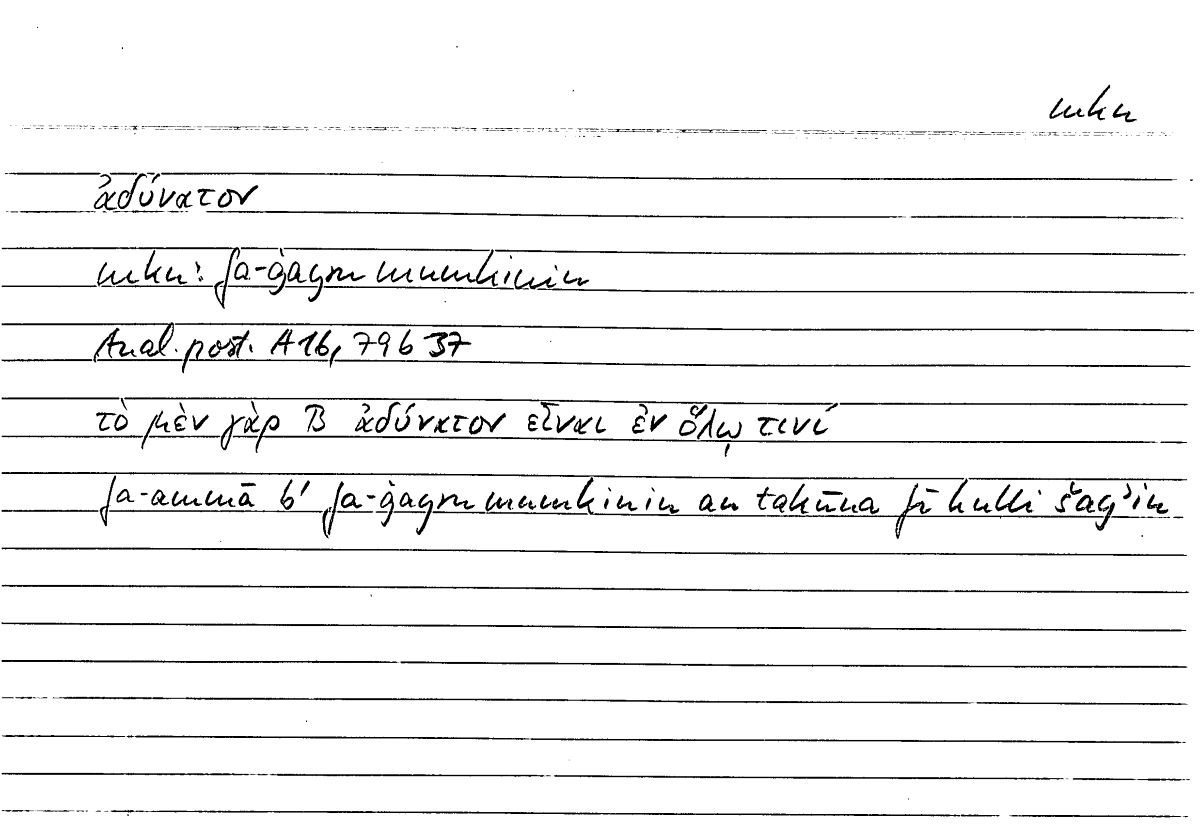 mkn
ἀδύνατον
mkn: fa-ġayru mumkinin
Anal. post. A16, 79b37
τὸ μὲν γὰρ B ἀδύνατον εἶναι ἐν ὅλῳ τινί
fa-ammā b' fa-ġayru mumkinin an takūna fī kulli šayʾin